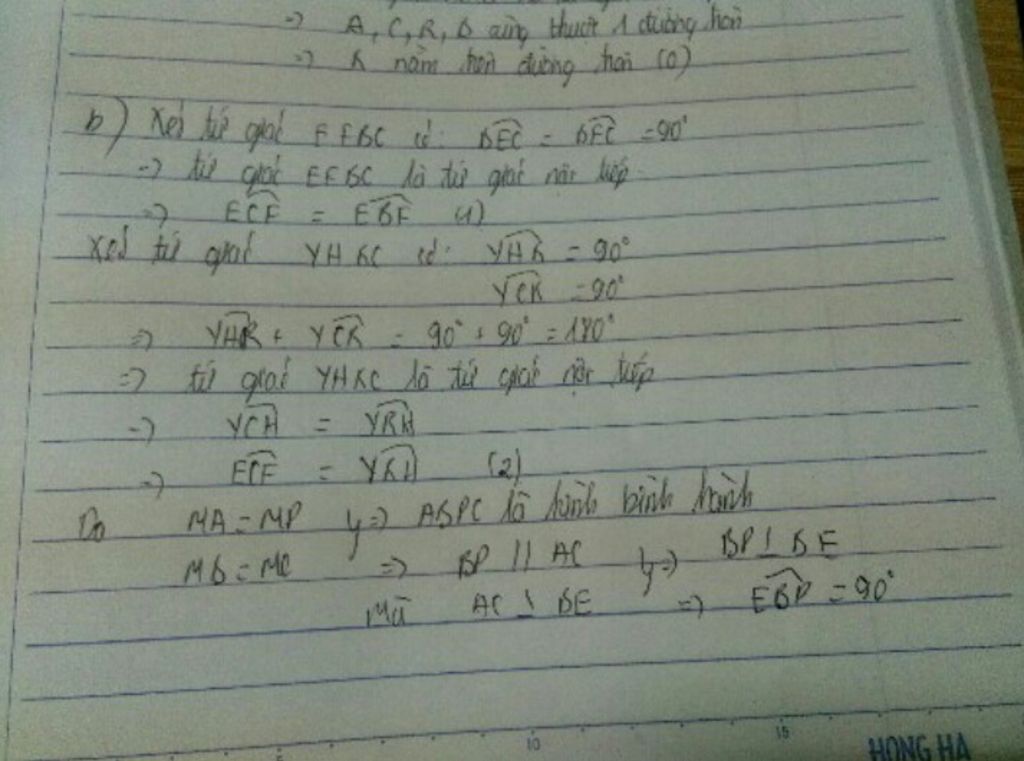 => A, C, K, B cùng thuộc 1 đường tròn
=> K nằm trên đường tròn (O)
b) Xét tứ giác EFBC có: BEC = BFC = 90°
=> tứ giác EFBC là tứ giác nội tiếp
=> ECF = EBF (1)
Xét tứ giác YHKC có: YHK = 90°
YCK = 90°
=> YHK + YCK = 90° + 90° = 180°
=> tứ giác YHKC là tứ giác nội tiếp
=> YCH = YKH
=> ECF = YKH (2)
Do MA = MP } => ABPC là hình bình hành
MB = MC => BP // AC } => BP ⊥ BE
Mà AC ⊥ BE => EBP = 90°
10 15
HONG HA